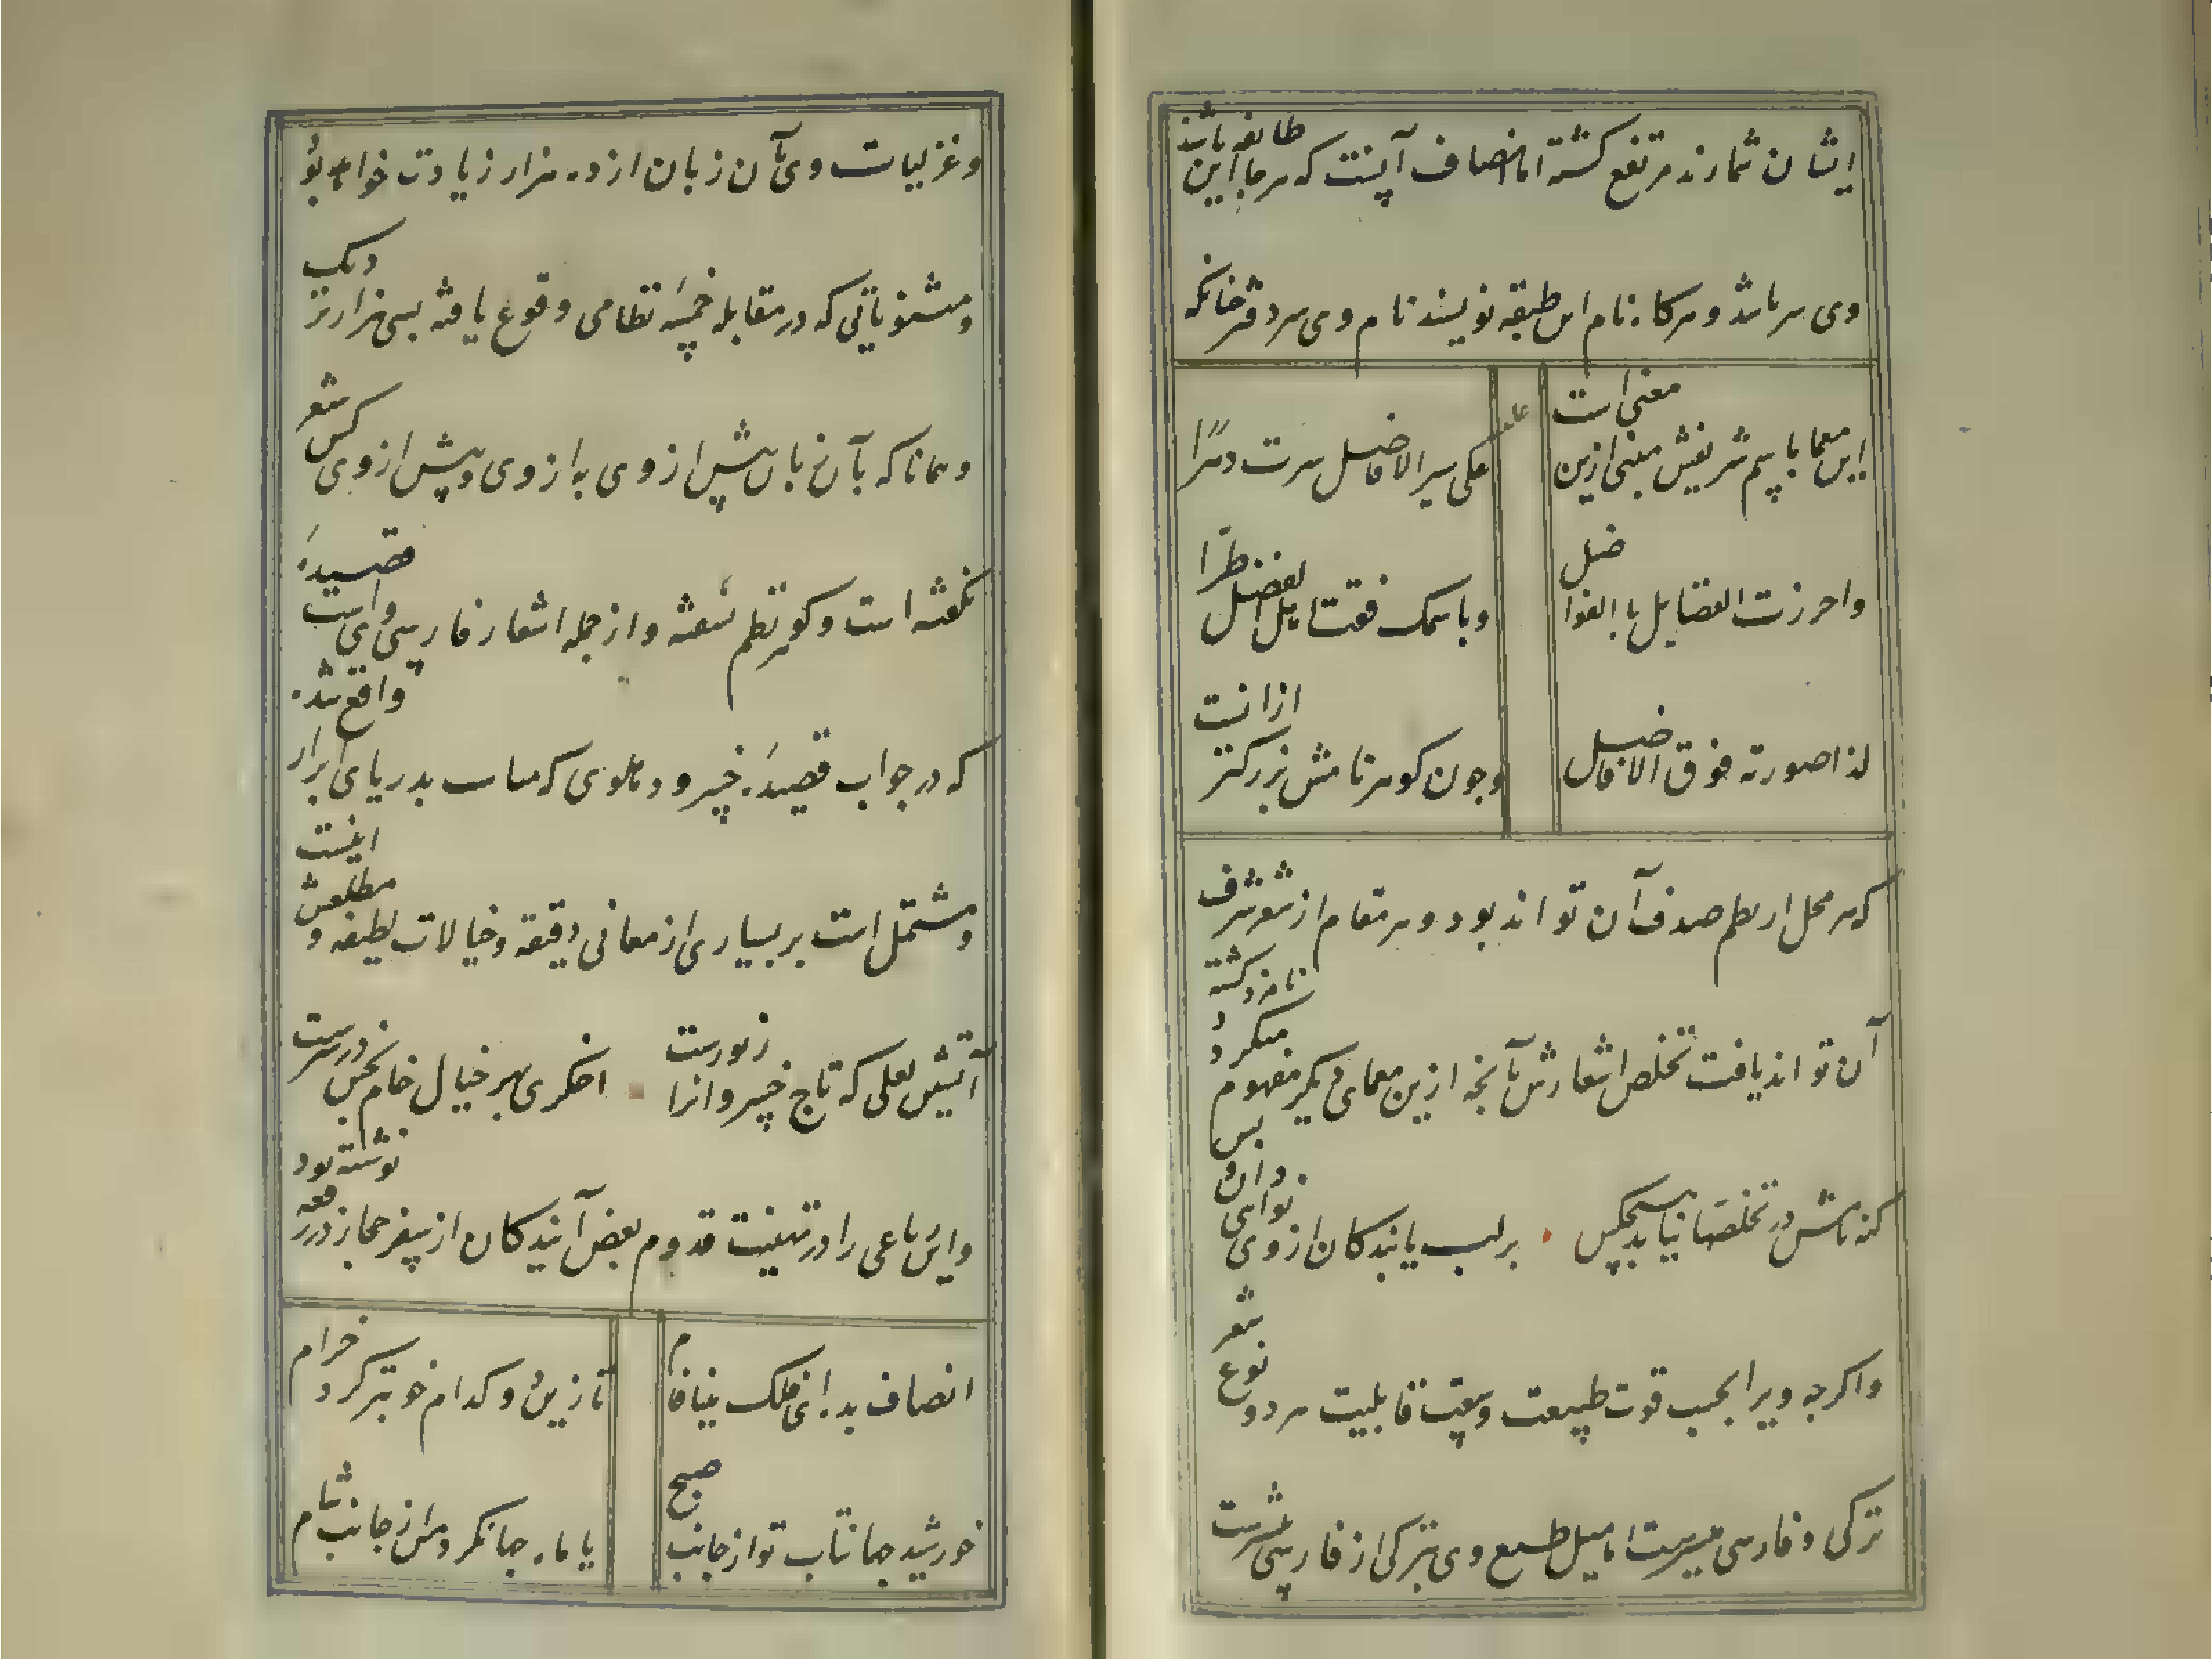 ایشان شمارند مرتفع کشته اما انصاف آنست که هر جا این طایفه باشند
وی سر باشد و هر کاه نام این طبقه نویسند نام وی سر دفتر چنانکه
این معما باسم شریفش مبنی ازین معنی است
علی سیر الافاضل سرت دهرا
واحرزت الفضایل بالفواضل
وباسمک فقت اهل الفضل طرا
لذا صورته فوق الافاضل
وجون کوهر نامش بزرکتر ازانست
که هر محل از نظم صدف آن تواند بود و هر مقام از شعر شرف
آن تواند یافت تخلص اشعارش بآنچه ازین معمای دیکر مفهوم میکردد نامزد کشته
کنه نامش در تخلصها نیابد هیچکس
بر لب یابندکان از وی نوایی دان و بس
واکرچه ویرا بحسب قوت طبیعت وسعت قابلیت هر دو نوع شعر
ترکی و فارسی میسرست اما میل طبع وی بترکی از فارسی بیشترست
و غزلیات وی بآن زبان از ده هزار زیادت خواهد بود
و مثنویاتی که در مقابله خمسه نظامی وقوع یافته بسی هزار نزدیک
و همانا که بآن زبان پیش از وی به از وی و بیش از وی کس شعر
نکفته است و کوهر نظم نسفته و از جمله اشعار فارسی وی است قصیده
که در جواب قصیده خسرو دهلوی که مسماست بدریای ابرار واقع شده
و مشتمل است بر بسیاری از معانی دقیقه و خیالات لطیفه و مطلعش اینست
آتشین لعلی که تاج خسروانرا زیورست
اخکری بهر خیال خام پختن در سرست
و این رباعی را در تهنیت قدوم بعض آیندکان از سفر حجاز در رقعه نوشته بود
انصاف بده ای فلک مینا فام
تا زین دو کدام خوبتر کرد خرام
خورشید جهانتاب تو از جانب صبح
یا ماه جهانکرد من از جانب شام